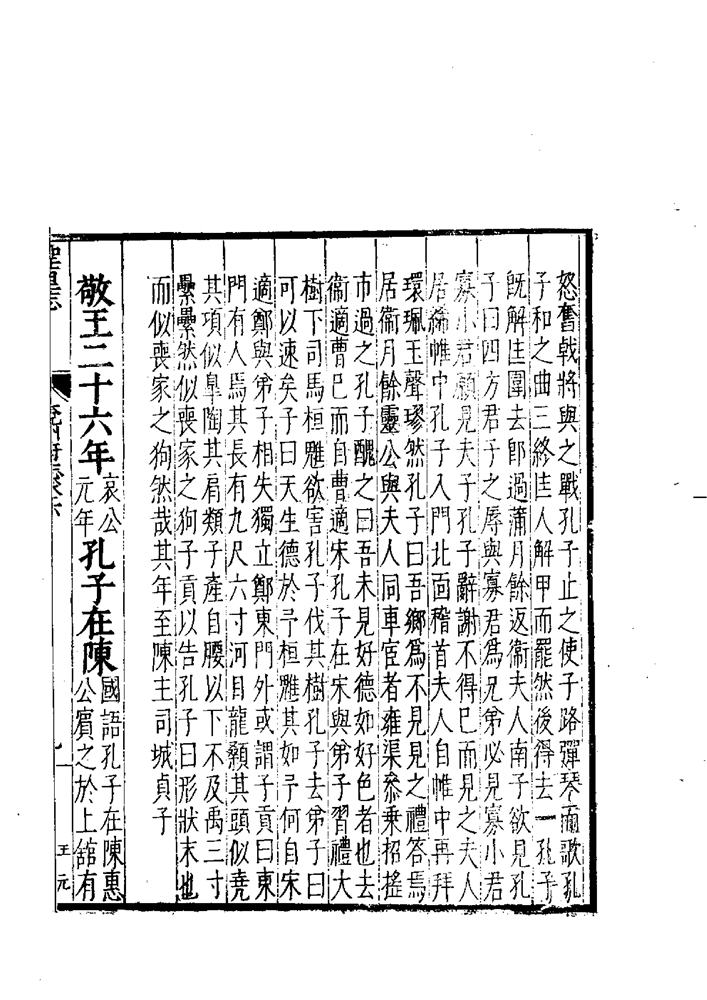 怒奮戟將與之戰孔子止之使子路彈琴而歌孔
子和之曲三終匡人解甲而罷然後得去一孔子
既解匡圍去即過蒲月餘返衞夫人南子欲見孔
子曰四方君子之辱與寡君爲兄弟必見寡小君
寡小君願見夫子孔子辭謝不得已而見之夫人
居絺帷中孔子入門北面稽首夫人自帷中再拜
環珮玉聲璆然孔子曰吾鄉爲不見見之禮答焉
居衞月餘靈公與夫人同車宦者雍渠參乘招搖
市過之孔子醜之曰吾未見好德如好色者也去
衞適曹已而自曹適宋孔子在宋與弟子習禮大
樹下司馬桓雕欲害孔子伐其樹孔子去弟子曰
可以速矣子曰天生德於予桓雕其如予何自宋
適鄭與弟子相失獨立鄭東門外或謂子貢曰東
門有人焉其長有九尺六寸河目龍顙其頭似堯
其項似皐陶其肩類子產自腰以下不及禹三寸
纍纍然似喪家之狗子貢以告孔子曰形狀末也
而似喪家之狗然哉其年至陳主司城貞子
敬王二十六年哀公元年孔子在陳國語孔子在陳惠公賓之於上舘有
聖里志
王元